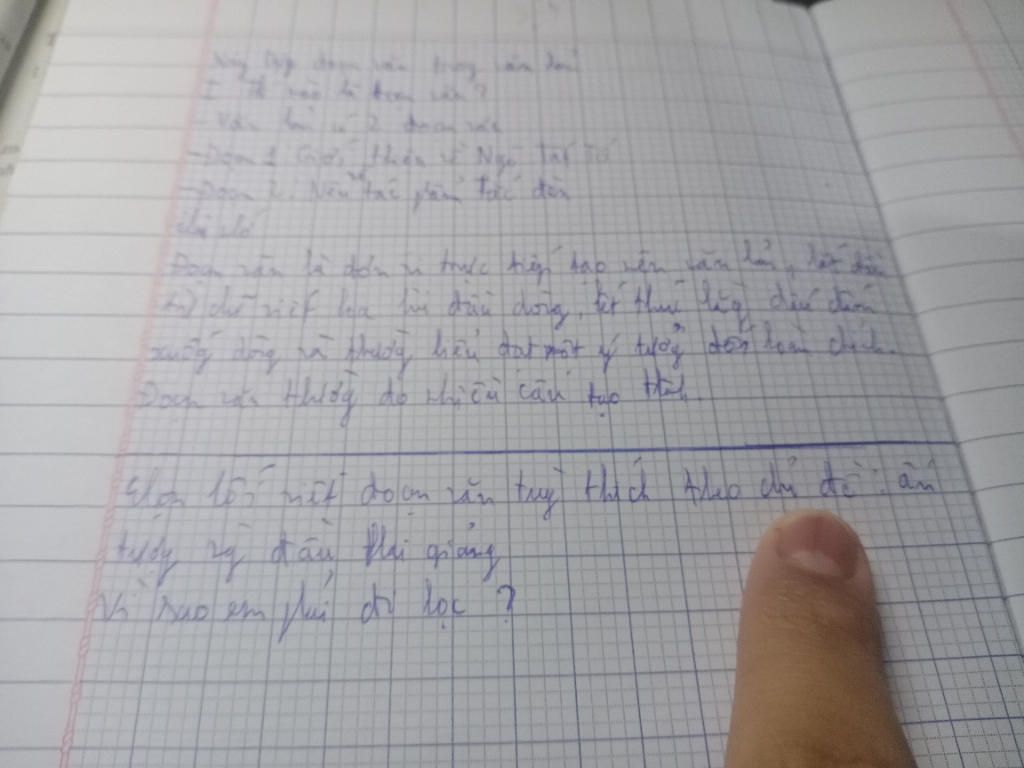 đoạn văn trong văn bản
I Thế nào là đoạn văn?
- Văn bản có 2 đoạn văn
- Đoạn 1 Giới thiệu về Ngô Tất Tố
- Đoạn 2. Nêu tác phẩm Tắt đèn
Đoạn văn là đơn vị trực tiếp tạo nên văn bản, bắt đầu
từ chữ viết hoa lùi đầu dòng, kết thúc bằng dấu chấm
xuống dòng và thường biểu đạt một ý tưởng đối hoàn chỉnh.
Đoạn văn thường do nhiều câu tạo thành.
Chọn lối viết đoạn văn tuỳ thích theo chủ đề: ấn
tượng về đầu khai giảng
Vì sao em phải đi học ?